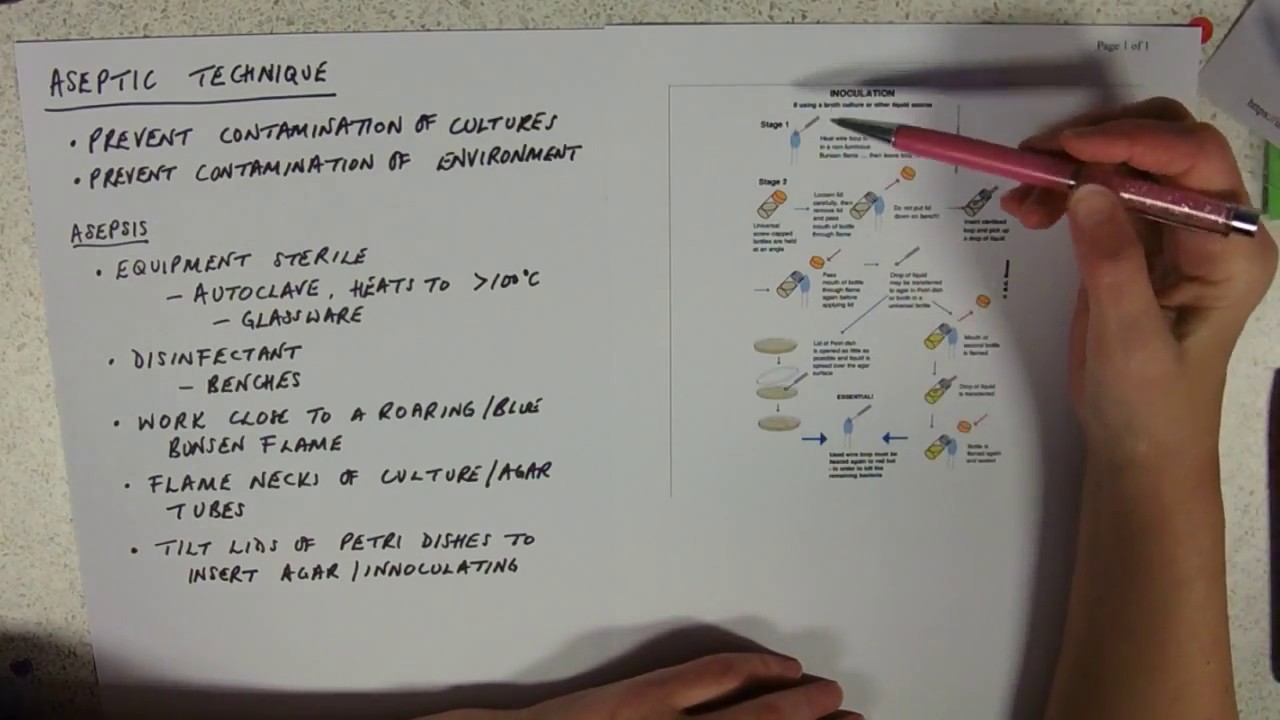 ASEPTIC TECHNIQUE
• PREVENT CONTAMINATION OF CULTURES
• PREVENT CONTAMINATION OF ENVIRONMENT
ASEPSIS
• EQUIPMENT STERILE
– AUTOCLAVE, HEATS TO >100°C
– GLASSWARE
• DISINFECTANT
– BENCHES
• WORK CLOSE TO A ROARING/BLUE
BUNSEN FLAME
• FLAME NECKS OF CULTURE/AGAR
TUBES
• TILT LIDS OF PETRI DISHES TO
INSERT AGAR/INNOCULATING
Page 1 of 1
INOCULATION
If using a broth culture or other liquid source
Stage 1
Heat wire loop
in a non-luminous
Bunsen flame ... then leave
Stage 2
Universal
screw-capped
bottles are held
at an angle
Loosen lid
carefully, then
remove lid
and pass
mouth of bottle
through flame
Do not put lid
down on bench!
Insert sterilised
loop and pick up
a drop of liquid
Pass
mouth of bottle
through flame
again before
applying lid
Drop of liquid
may be transferred
to agar in Petri dish
or broth in a
universal bottle
Lid of Petri dish
is opened as little as
possible and liquid is
spread over the agar
surface
Mouth of
second bottle
is flamed
Drop of liquid
is transferred
Bottle is
flamed again
and sealed
ESSENTIAL!
Used wire loop must be
heated again to red hot
- in order to kill the
remaining bacteria
https: